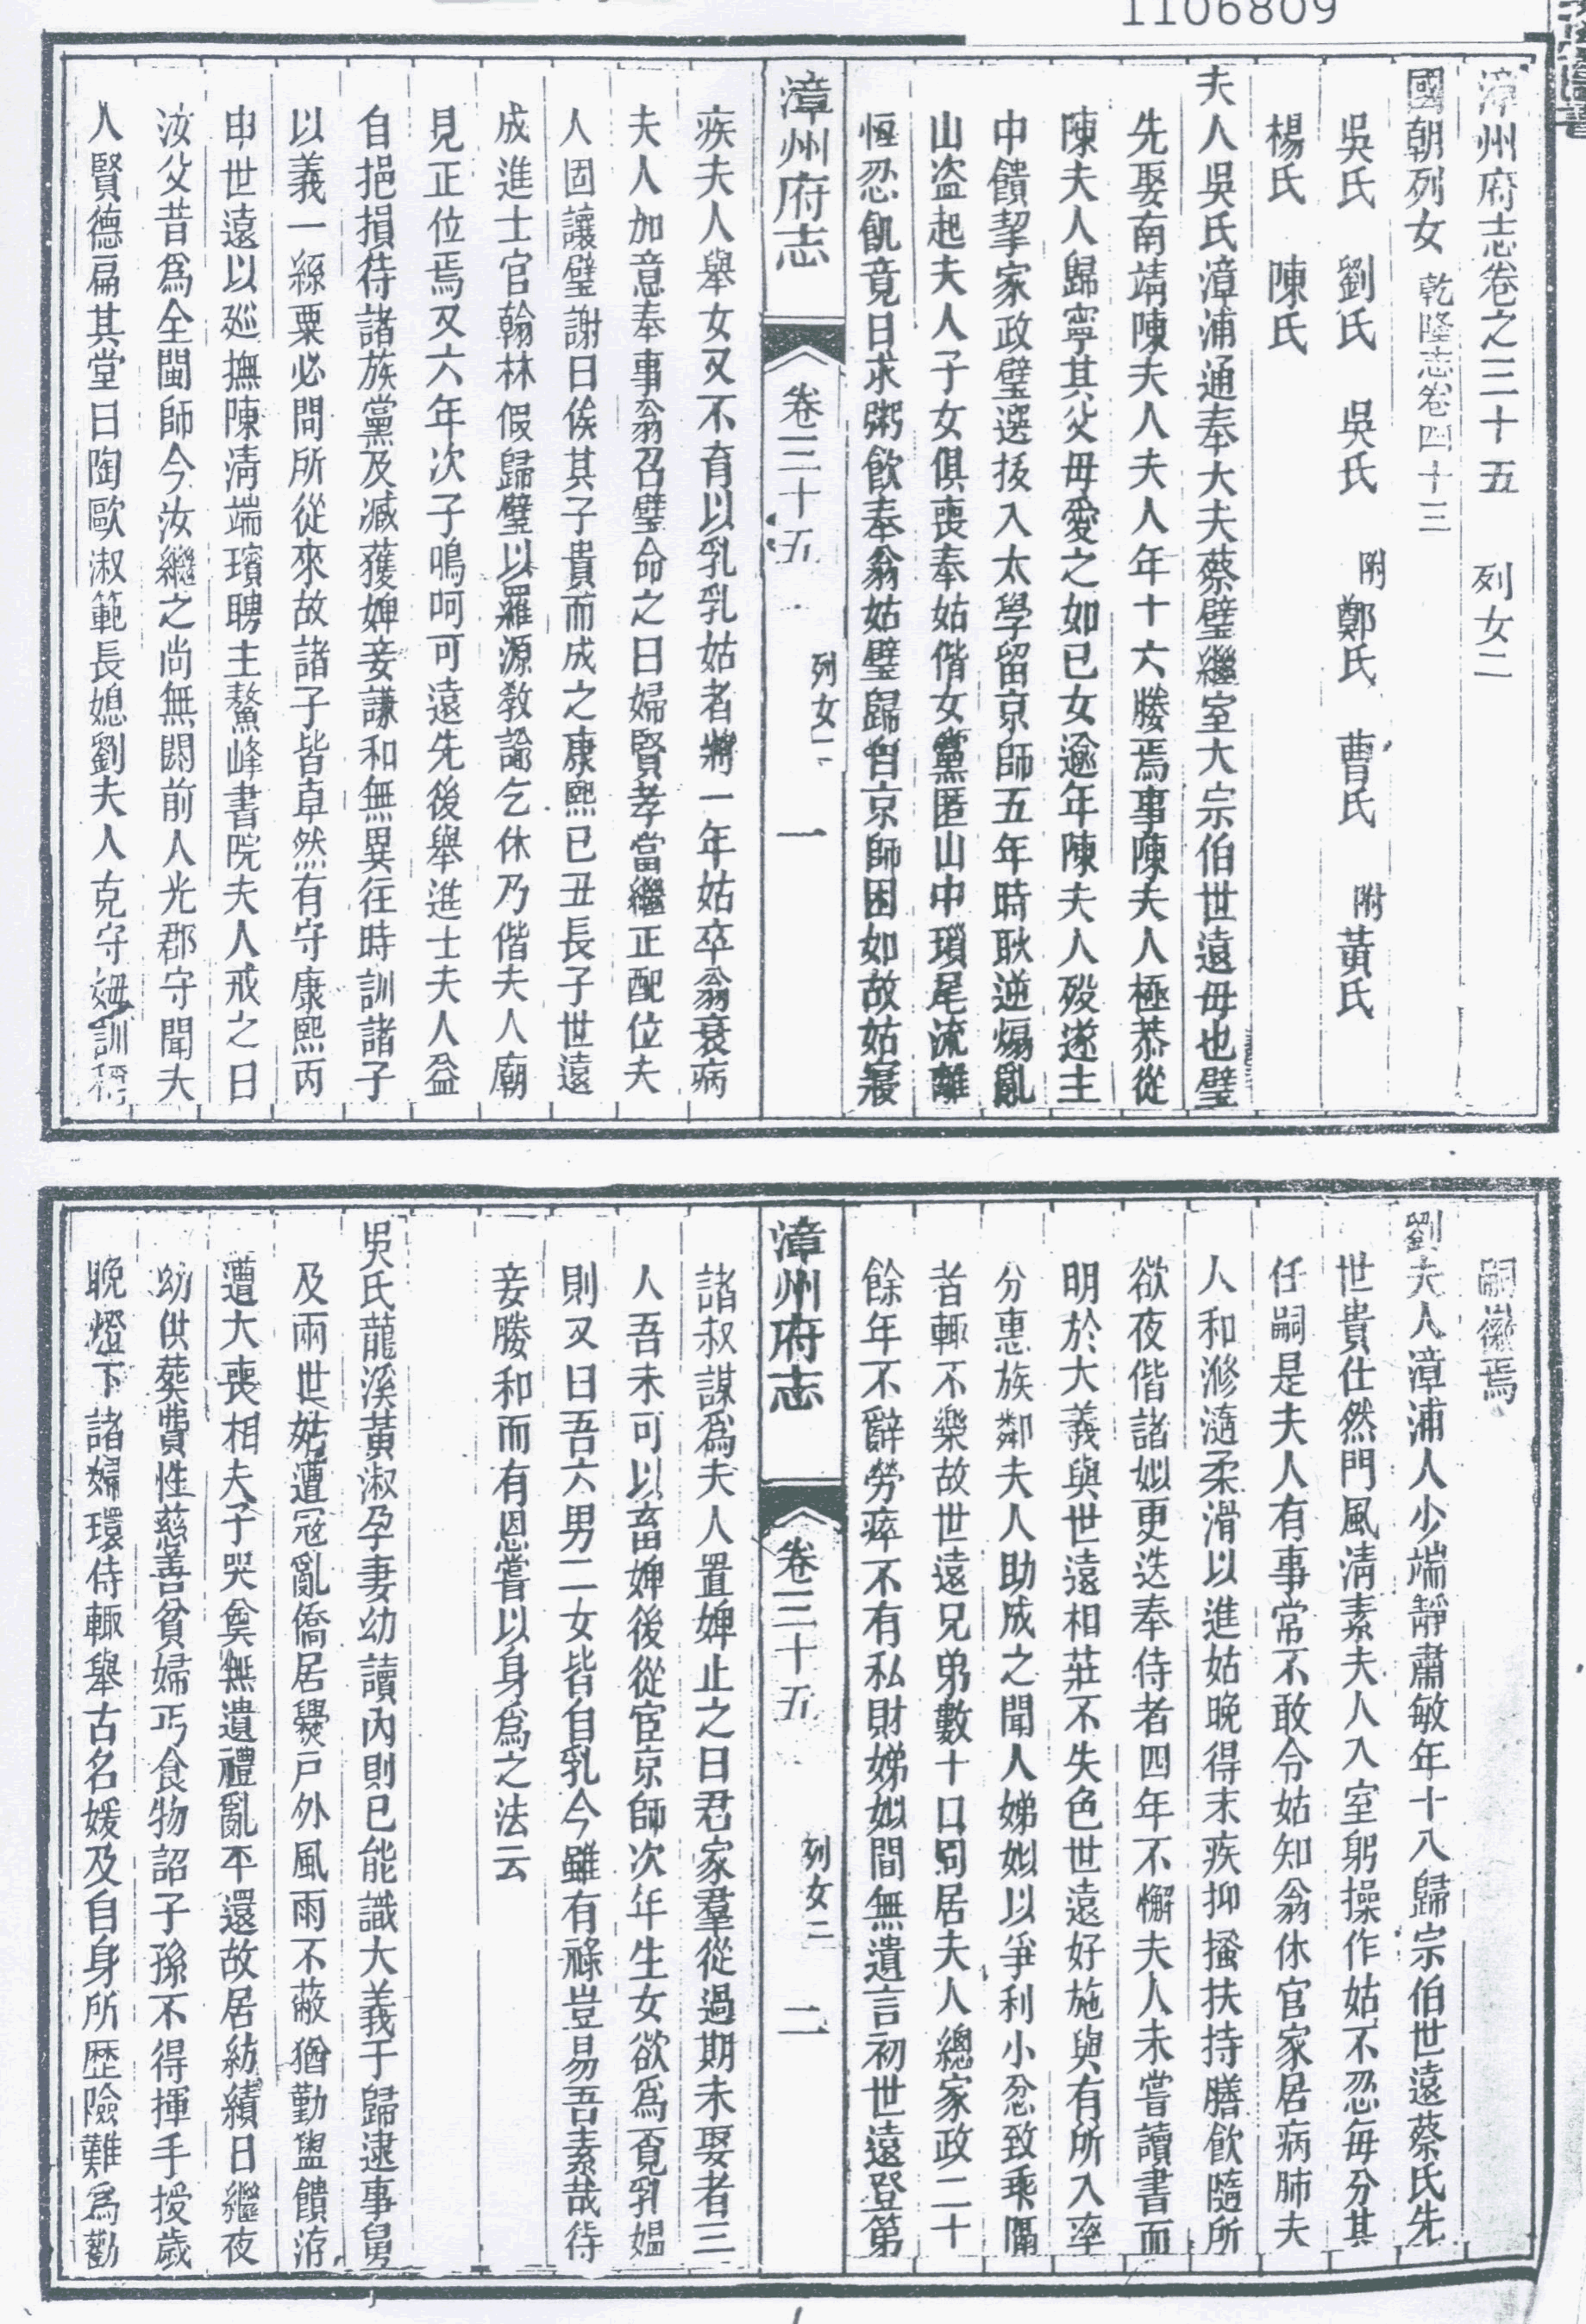 1106809
漳州府志卷之三十五　列女二
國朝列女　乾隆志卷四十三
吳氏　劉氏　吳氏　附鄭氏　曹氏　附黃氏
楊氏　陳氏
夫人吳氏漳浦通奉大夫蔡璧繼室大宗伯世遠母也璧
先娶南靖陳夫人夫人年十六媵焉事陳夫人極恭從
陳夫人歸寧其父母愛之如己女逾年陳夫人歿遂主
中饋挈家政璧選拔入太學留京師五年時耿逆煽亂
山盜起夫人子女俱喪奉姑偕女黨匿山中瑣尾流離
恒忍飢竟日求粥飲奉翁姑璧歸自京師困如故姑寢
漳州府志　卷三十五　列女二　一
疾夫人舉女又不育以乳乳姑者將一年姑卒翁衰病
夫人加意奉事翁召璧命之曰婦賢孝當繼正配位夫
人固讓璧謝曰俟其子貴而成之康熙己丑長子世遠
成進士官翰林假歸璧以羅源教諭乞休乃偕夫人廟
見正位焉又六年次子鳴呵可遠先後舉進士夫人益
自挹損待諸族黨及減獲婢妾謙和無異往時訓諸子
以義一絲粟必問所從來故諸子皆卓然有守康熙丙
申世遠以廵撫陳淸端璸聘主鰲峰書院夫人戒之曰
汝父昔爲全閩師今汝繼之尚無閼前人光郡守聞大
人賢德扁其堂曰陶歐淑範長媳劉夫人克守姆訓稱
嗣徽焉
劉夫人漳浦人少端靜肅敏年十八歸宗伯世遠蔡氏先
世貴仕然門風淸素夫人入室躬操作姑不忍每分其
任嗣是夫人有事常不敢令姑知翁休官家居病肺夫
人和滫瀡柔滑以進姑晚得末疾抑搔扶持膳飲隨所
欲夜偕諸姒更迭奉侍者四年不懈夫人未嘗讀書而
明於大義與世遠相莊不失色世遠好施與有所入率
分惠族鄰夫人助成之聞人娣姒以爭利小忿致乖隔
者輒不樂故世遠兄弟數十口同居夫人總家政二十
餘年不辭勞瘁不有私財娣姒間無遺言初世遠登第
漳州府志　卷三十五　列女二　二
諸叔謀爲夫人置婢止之曰君家羣從過期未娶者三
人吾未可以畜婢後從宦京師次年生女欲爲覓乳媼
則又曰吾六男二女皆自乳今雖有祿豈易吾素哉待
妾媵和而有恩嘗以身爲之法云
吳氏龍溪黃淑孕妻幼讀內則已能識大義于歸逮事舅
及兩世姑遭寇亂僑居爨戶外風雨不蔽猶勤盥饋洊
遭大喪相夫子哭奠無遺禮亂平還故居紡績日繼夜
幼供葬費性慈善貧婦丐食物詔子孫不得揮手授歲
晚燈下諸婦環侍輒舉古名媛及自身所歷險難爲勸